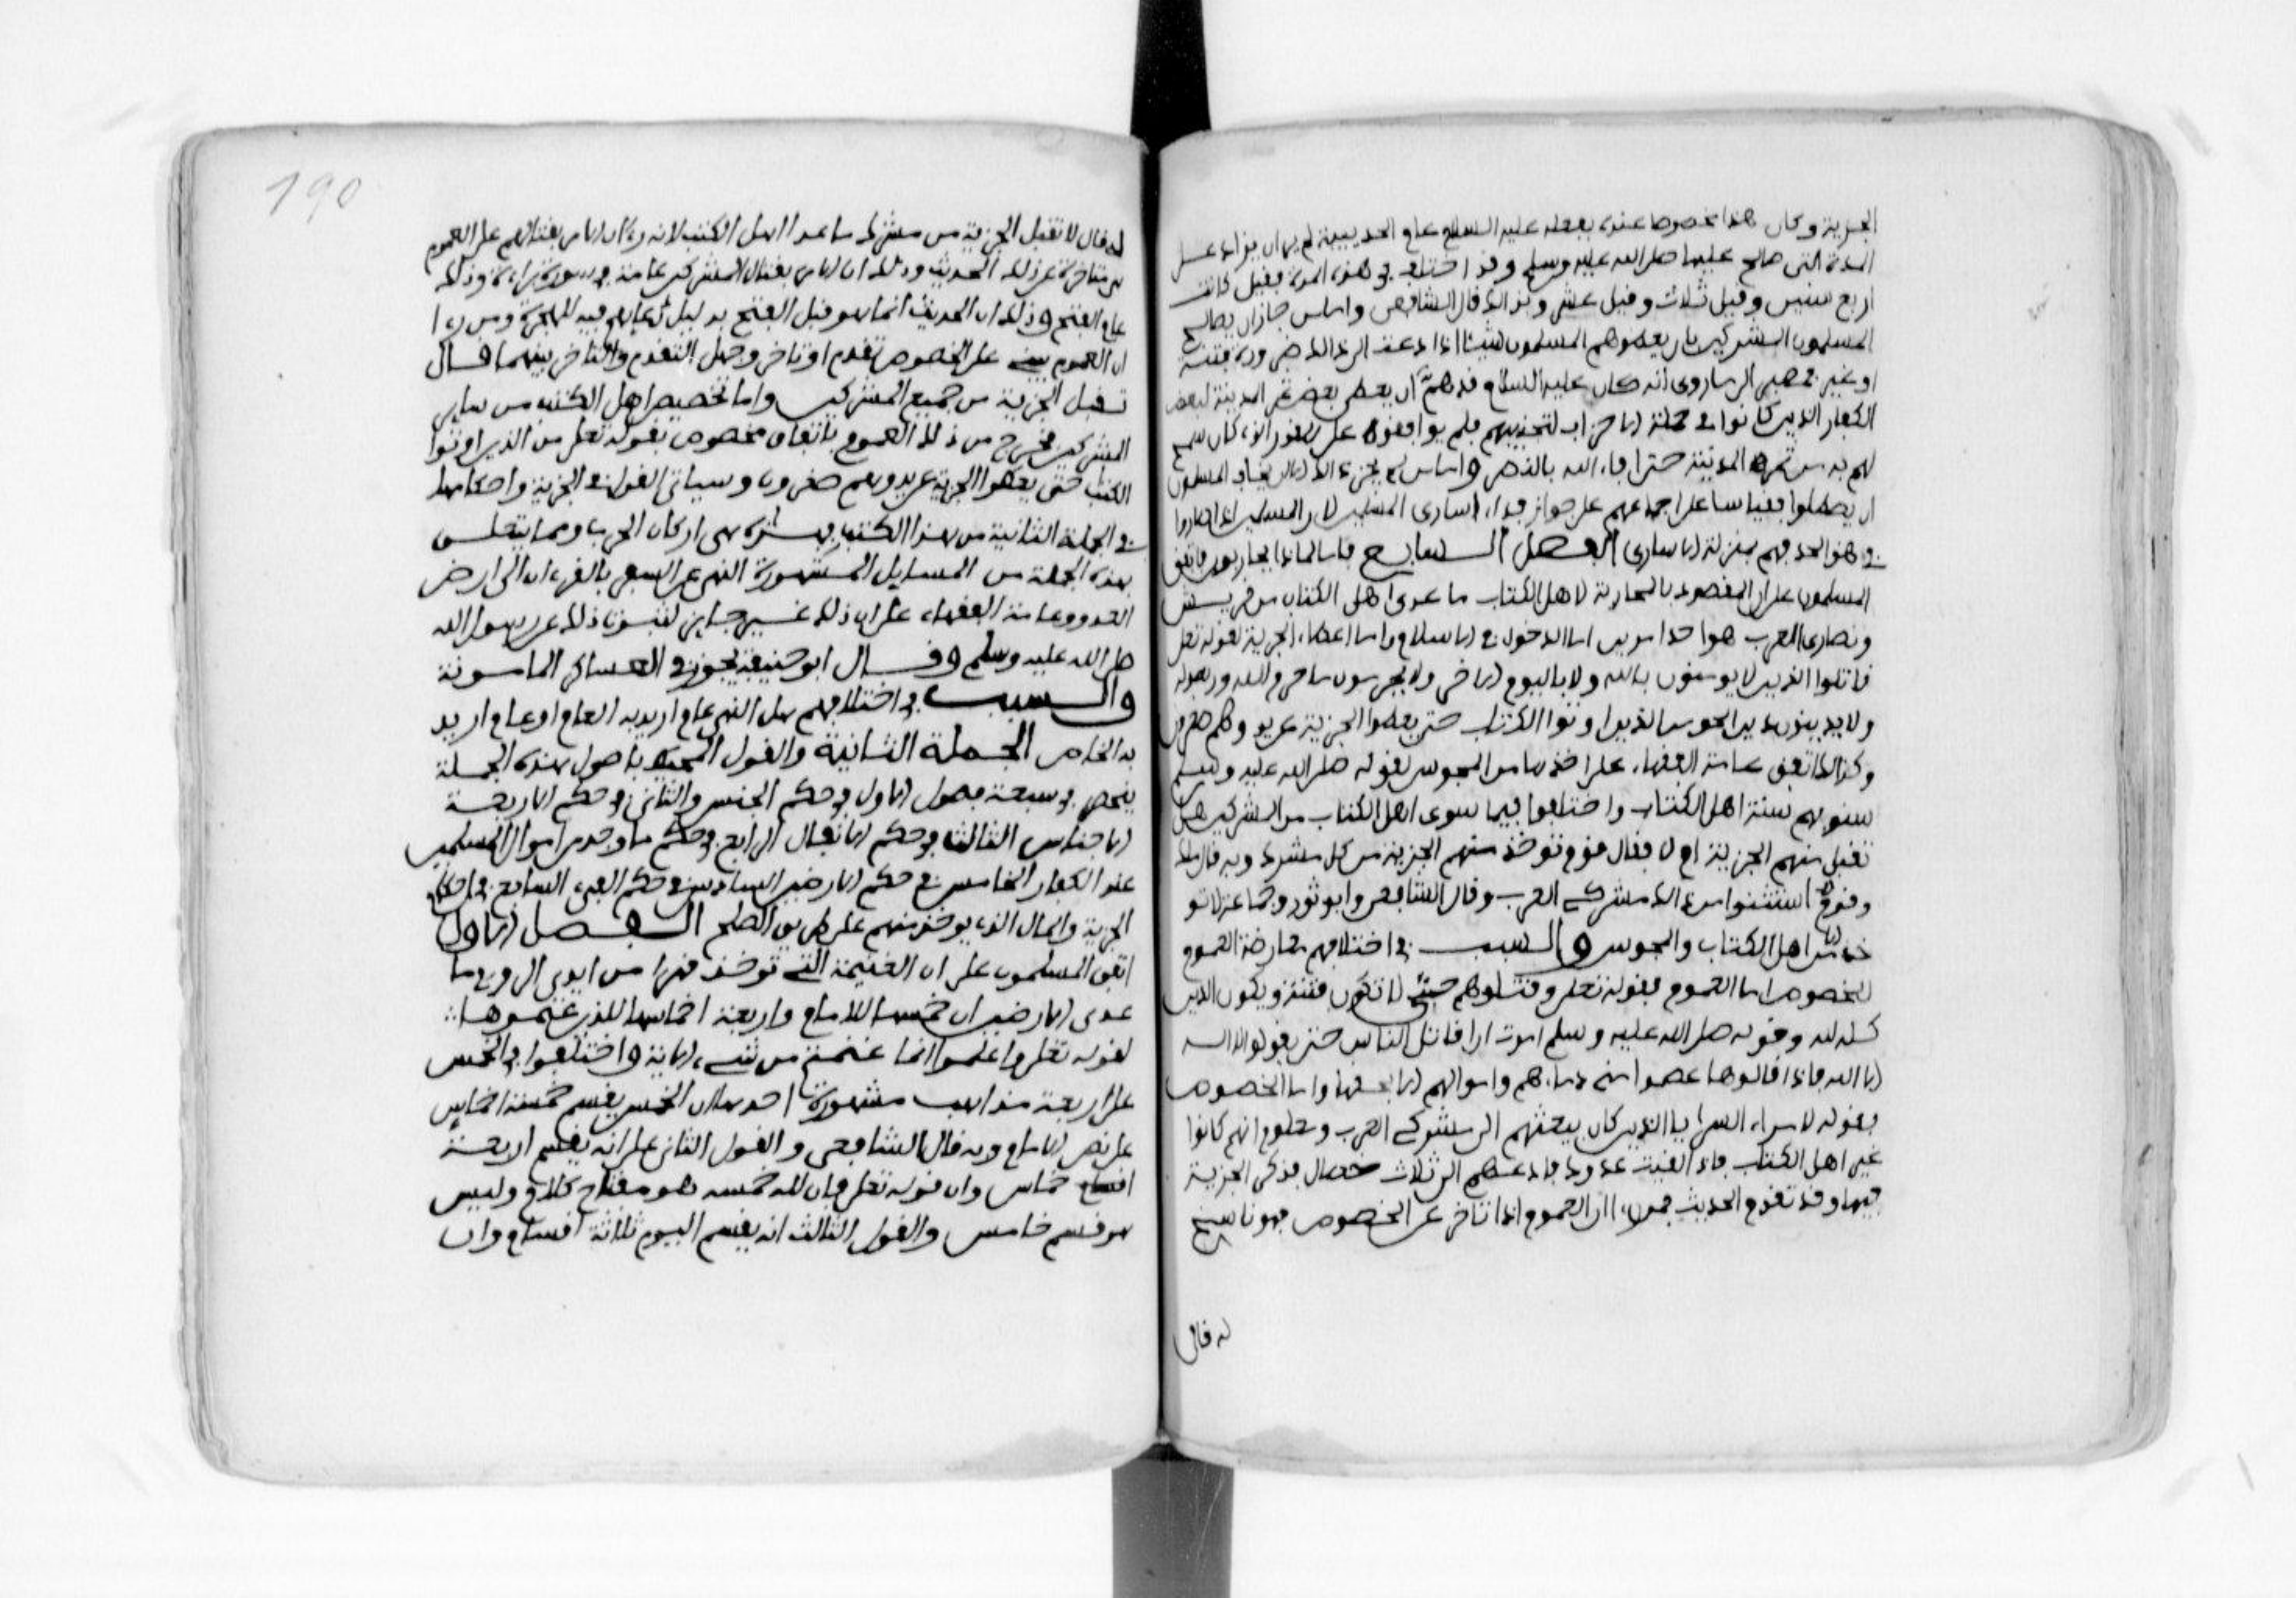 الجزية وكان هذا مخصوصا عنده بفعله عليه السلام عام الحديبية لم يران يزاد على
المدة التى صالح عليها صلى الله عليه وسلم وقد اختلف فى هذه المدة فقيل كانت
اربع سنين وقيل ثلاث وقيل عشر وبذالك قال الشافعى واما من جاز ان يصالح
المسلمون المشركين بان يعطوهم المسلمون شيئا اذا دعت الى ذالك ضرورة فتنة
او غير فمصير الى ما روى انه كان عليه السلام قد هم ان يعطى بعض ثمر المدينة لبعض
الكفار الذين كانوا فى جملة الاحزاب لتخذيلهم فلم يوافقوه على القدر الذى كان سمح
لهم به من ثمرة المدينة حتى افاء الله بالنصر واما من لم يجز ذالك الا ان يخاف المسلمون
ان يصطلموا فقياسا على اجماعهم على جواز فداء اسارى المسلمين لان المسلمين اذا صاروا
فى هذا الحد فهم بمنزلة الاسارى الفصل السابع فاما لماذا يحاربون فاتفق
المسلمون على ان المقصود بالمحاربة لاهل الكتاب ما عدى اهل الكتاب من قريش
ونصارى العرب هو احد امرين اما الدخول فى الاسلام واما اعطاء الجزية لقوله تعلى
قاتلوا الذين لا يومنون بالله ولا باليوم الاخر ولا يحرمون ما حرم الله ورسوله
ولا يدينون دين الحق من الذين اوتوا الكتاب حتى يعطوا الجزية عن يد وهم صغرون
وكذالك اتفق عامة الفقهاء على اخذها من المجوس لقوله صلى الله عليه وسلم
سنوا بهم سنة اهل الكتاب واختلفوا فيما سوى اهل الكتاب من المشركين هل
تقبل منهم الجزية ام لا فقال قوم توخذ منهم الجزية من كل مشرك وبه قال ملك
وقوم استثنوا من ذالك مشركى العرب وقال الشافعى وابو ثور وجماعة لا تو
خذ الا من اهل الكتاب والمجوس والسبب فى اختلافهم معارضة العموم
للخصوص اما العموم فقوله تعلى وقتلوهم حتى لا تكون فتنة ويكون الدين
كله لله وقوله صلى الله عليه وسلم امرت ان اقاتل الناس حتى يقولوا لا اله
الا الله فاذا قالوها عصموا منى دماءهم واموالهم الا بحقها واما الخصوص
فقوله لامراء السرايا الذين كان يبعثهم الى مشركى العرب ومعلوم انهم كانوا
غير اهل الكتاب فاذا لقيت عدوك فادعهم الى ثلاث خصال فذكر الجزية
فيها وقد تقدم الحديث فمن راى ان العموم اذا تاخر عن الخصوص فهو ناسخ
له قال
190
له قال لا تقبل الجزية من مشرك ما عدا اهل الكتب لان الامر بقتالهم على العموم
هى متاخرة عن ذلك الحديث وذلك ان الامر بقتال المشركين عامة هو فى سورة براءة وذلك
عام الفتح وذلك ان الحديث انما هو قبل الفتح بدليل دعائهم فيه للهجرة ومن راى
ان العموم يبنى على الخصوص تقدم او تاخر وجهل التقدم والتاخر بينهما قال
تقبل الجزية من جميع المشركين واما تخصيص اهل الكتب من سائر
المشركين فخرج من ذلك العموم باتفاق مخصوص بقوله تعلى من الذين اوتوا
الكتب حتى يعطوا الجزية عن يد وهم صغرون وسياتى القول فى الجزية واحكامها
فى الجملة الثانية من هذا الكتب فهذه هى اركان الحرب ومما يتعلق
بهذه الجملة من المسايل المشهورة النهى عن السفر بالقرءان الى ارض
العدو وعامة الفقهاء على ان ذلك غير جايز لثبوت ذلك عن رسول الله
صلى الله عليه وسلم وقال ابو حنيفة يجوز فى العساكر المامونة
والسبب فى اختلافهم هل النهى عام اريد به العام او عام اريد
به الخاص الجملة الثانية والقول المحيط باصول هذه الجملة
ينحصر فى سبعة فصول الاول فى حكم الخمس والثانى فى حكم الاربعة
الاخماس الثالث فى حكم الانفال الرابع فى حكم ما وجد من اموال المسلمين
عند الكفار الخامس فى حكم الارضين السادس فى حكم الفىء السابع فى احكام
الجزية والمال الذى يوخذ منهم على طريق الصلح الفصل الاول
اتفق المسلمون على ان الغنيمة التى توخذ قهرا من ايدى الروم ما
عدى الارضين ان خمسها للامام واربعة اخماسها للذين غنموها
لقوله تعلى واعلموا انما غنمتم من شىء الاية واختلفوا فى الخمس
على اربعة مذاهب مشهورة احدها ان الخمس يقسم خمسة اخماس
على نص الاية وبه قال الشافعى والقول الثانى على انه يقسم اربعة
اخماس وان قوله تعلى فان لله خمسه هو مفتاح كلام وليس
هو قسم خامس والقول الثالث انه يقسم اليوم ثلاثة اقسام وان